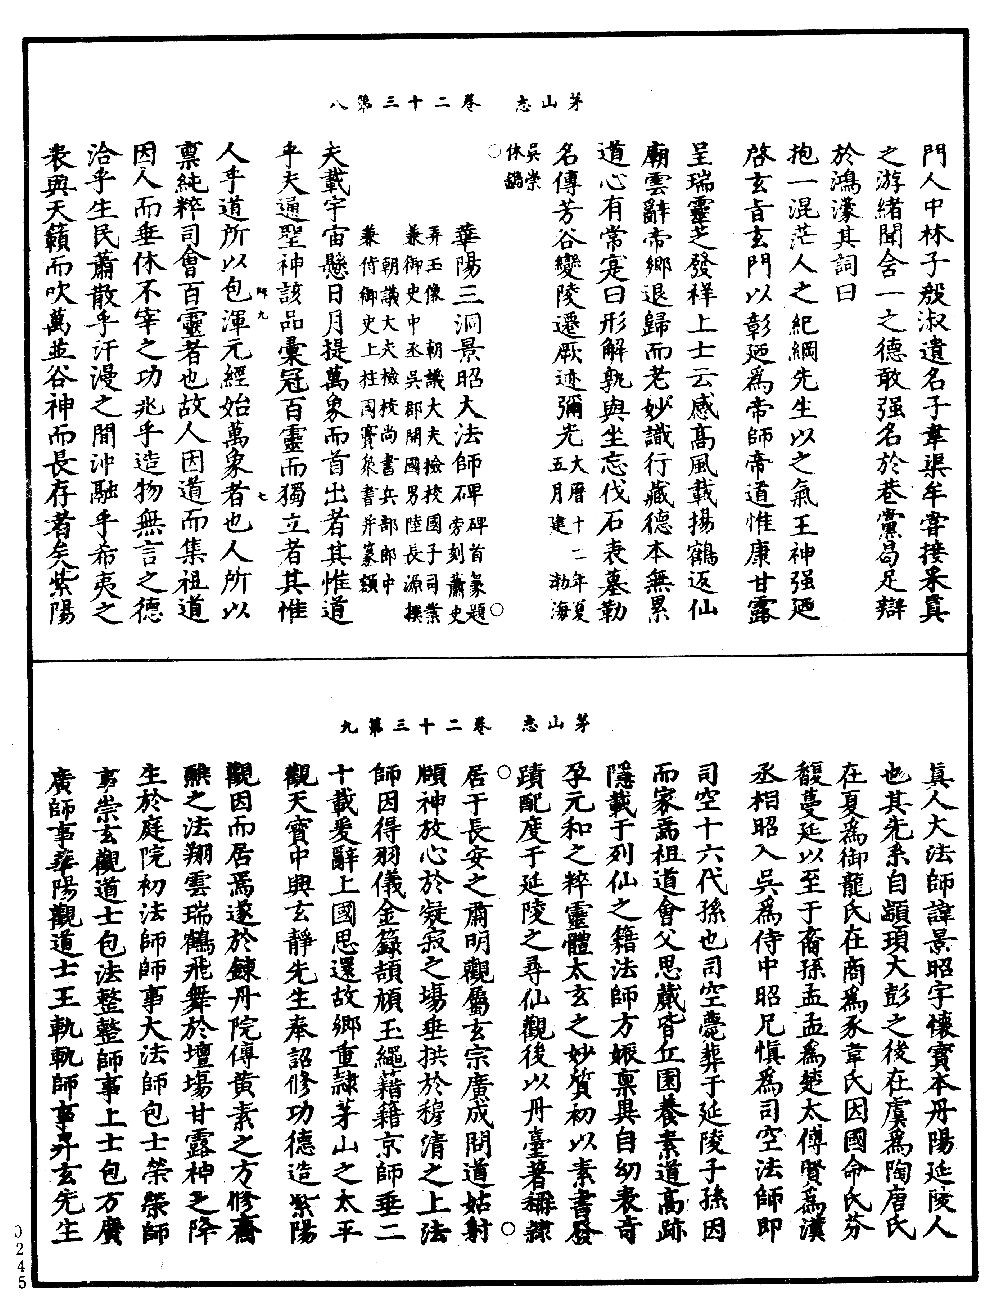 茅山志　卷二十三第八
門人中林子殷淑遺名子韋渠牟嘗接采真
之游緒聞含一之德敢强名於巷黨曷足辯
於鴻濛其詞曰
抱一混茫人之紀綱先生以之氣王神强廼
啓玄旨玄門以彰廼爲帝師帝道惟康甘露
呈瑞靈芝發祥上士云感高風載揚鶴返仙
廟雲辭帝鄉退歸而老妙識行藏德本無累
道心有常寔曰形解孰與坐忘伐石表墓勒
名傳芳谷變陵遷厥迹彌光大曆十二年夏五月建渤海
吳崇休鐫
○
華陽三洞景昭大法師碑碑首篆題○旁刻蕭史
弄玉像　朝議大夫檢校國子司業
兼御史中丞吳郡開國男陸長源撰
朝議大夫檢校尚書兵部郎中
兼侍御史上柱國竇臮書并篆額
夫載宇宙懸日月提萬象而首出者其惟道
乎夫通聖神該品彙冠百靈而獨立者其惟
人乎道所以包渾元經始萬象者也人所以
稟純粹司會百靈者也故人因道而集祖道
因人而垂休不宰之功兆乎造物無言之德
洽乎生民蕭散乎汗漫之間沖融乎希夷之
表與天籟而吹萬並谷神而長存者矣紫陽
茅山志　卷二十三第九
真人大法師諱景昭字懷寶本丹陽延陵人
也其先系自顓頊大彭之後在虞爲陶唐氏
在夏爲御龍氏在商爲豕韋氏因國命氏芬
馥蔓延以至于裔孫孟孟爲楚太傅賢爲漢
丞相昭入吳爲侍中昭兄慎爲司空法師即
司空十六代孫也司空薨葬于延陵子孫因
而家焉祖道會父思藏皆丘園養素道高跡
隱載于列仙之籍法師方娠稟異自幼表奇
孕元和之粹靈體太玄之妙質初以素書發
蹟配度于延陵之尋仙觀後以丹臺著稱隸
居于長安之肅明觀屬玄宗廣成問道姑射
○
○
頤神放心於凝寂之場垂拱於穆清之上法
師因得羽儀金籙頡頏玉繩藉藉京師垂二
十載爰辭上國思還故鄉重隸茅山之太平
觀天寶中興玄靜先生奉詔修功德造紫陽
觀因而居焉遂於鍊丹院傳黃素之方修齋
醮之法翔雲瑞鶴飛舞於壇場甘露神芝降
生於庭院初法師師事大法師包士榮榮師
事崇玄觀道士包法整整師事上士包方廣
廣師事華陽觀道士王軌軌師事昇玄先生
0245